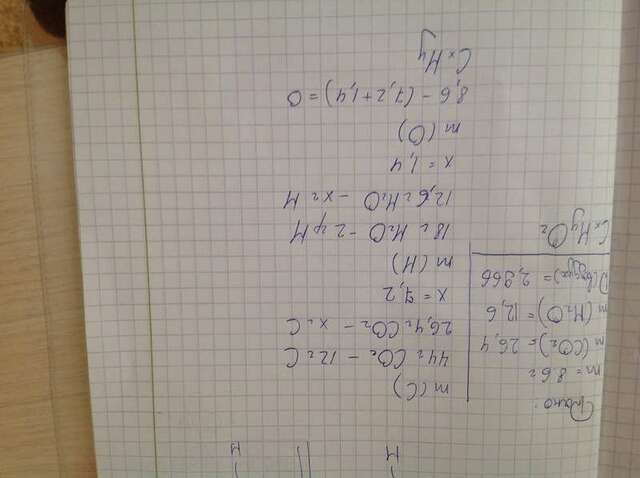 Дано:
m = 8,6г
m(CO₂) = 26,4
m(H₂O) = 12,6
D(воздух) = 2,966
CₓHᵧO₂
m(C)
44г CO₂ – 12г C
26,4г CO₂ – xг C
x = 7,2
m(H)
18г H₂O – 2г H
12,6г H₂O – xг H
x = 1,4
m(O)
8,6 – (7,2 + 1,4) = 0
CₓHᵧ